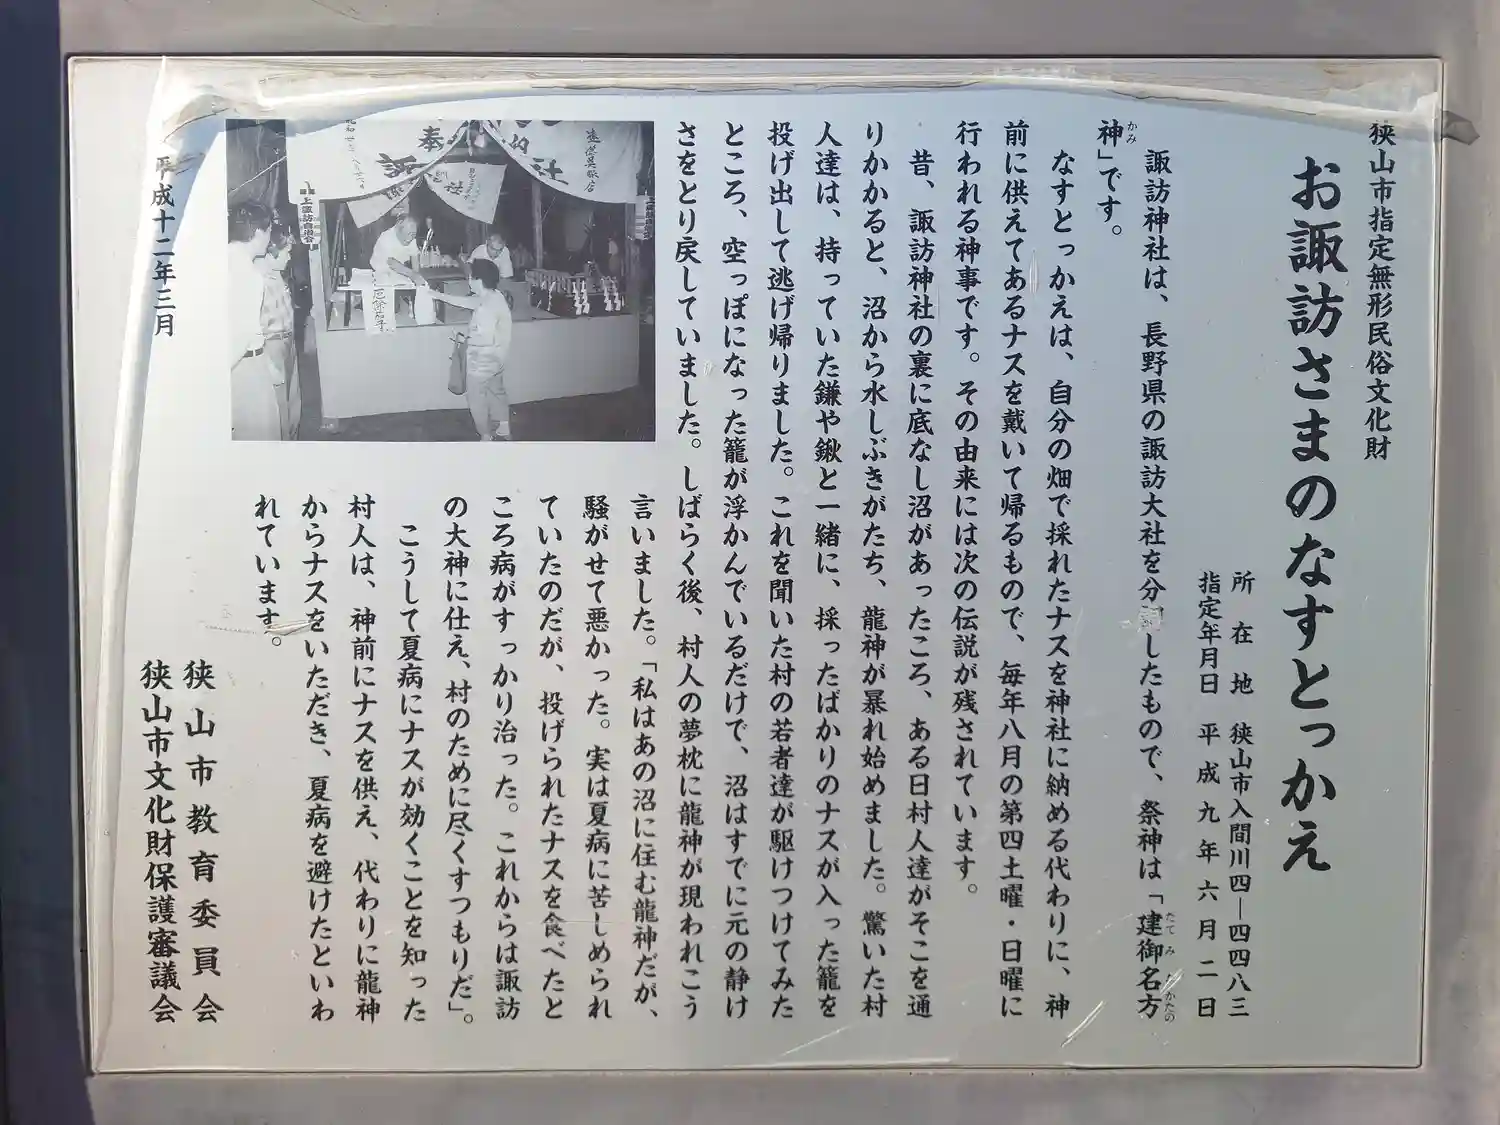 狭山市指定無形民俗文化財
お諏訪さまのなすとっかえ
所在地 狭山市入間川四―四四八三
指定年月日 平成九年六月二日
諏訪神社は、長野県の諏訪大社を分祠したもので、祭神は「建御名方
神」です。
なすとっかえは、自分の畑で採れたナスを神社に納める代わりに、神
前に供えてあるナスを戴いて帰るもので、毎年八月の第四土曜・日曜に
行われる神事です。その由来には次の伝説が残されています。
昔、諏訪神社の裏に底なし沼があったころ、ある日村人達がそこを通
りかかると、沼から水しぶきがたち、龍神が暴れ始めました。驚いた村
人達は、持っていた鎌や鍬と一緒に、採ったばかりのナスが入った籠を
投げ出して逃げ帰りました。これを聞いた村の若者達が駆けつけてみた
ところ、空っぽになった籠が浮かんでいるだけで、沼はすでに元の静け
さをとり戻していました。しばらく後、村人の夢枕に龍神が現われこう
言いました。「私はあの沼に住む龍神だが、
騒がせて悪かった。実は夏病に苦しめられ
ていたのだが、投げられたナスを食べたと
ころ病がすっかり治った。これからは諏訪
の大神に仕え、村のために尽くすつもりだ」。
こうして夏病にナスが効くことを知った
村人は、神前にナスを供え、代わりに龍神
からナスをいただき、夏病を避けたといわ
れています。
狭山市教育委員会
狭山市文化財保護審議会
平成十二年三月
奉納
諏訪社
上諏訪自治会
厄除茄子